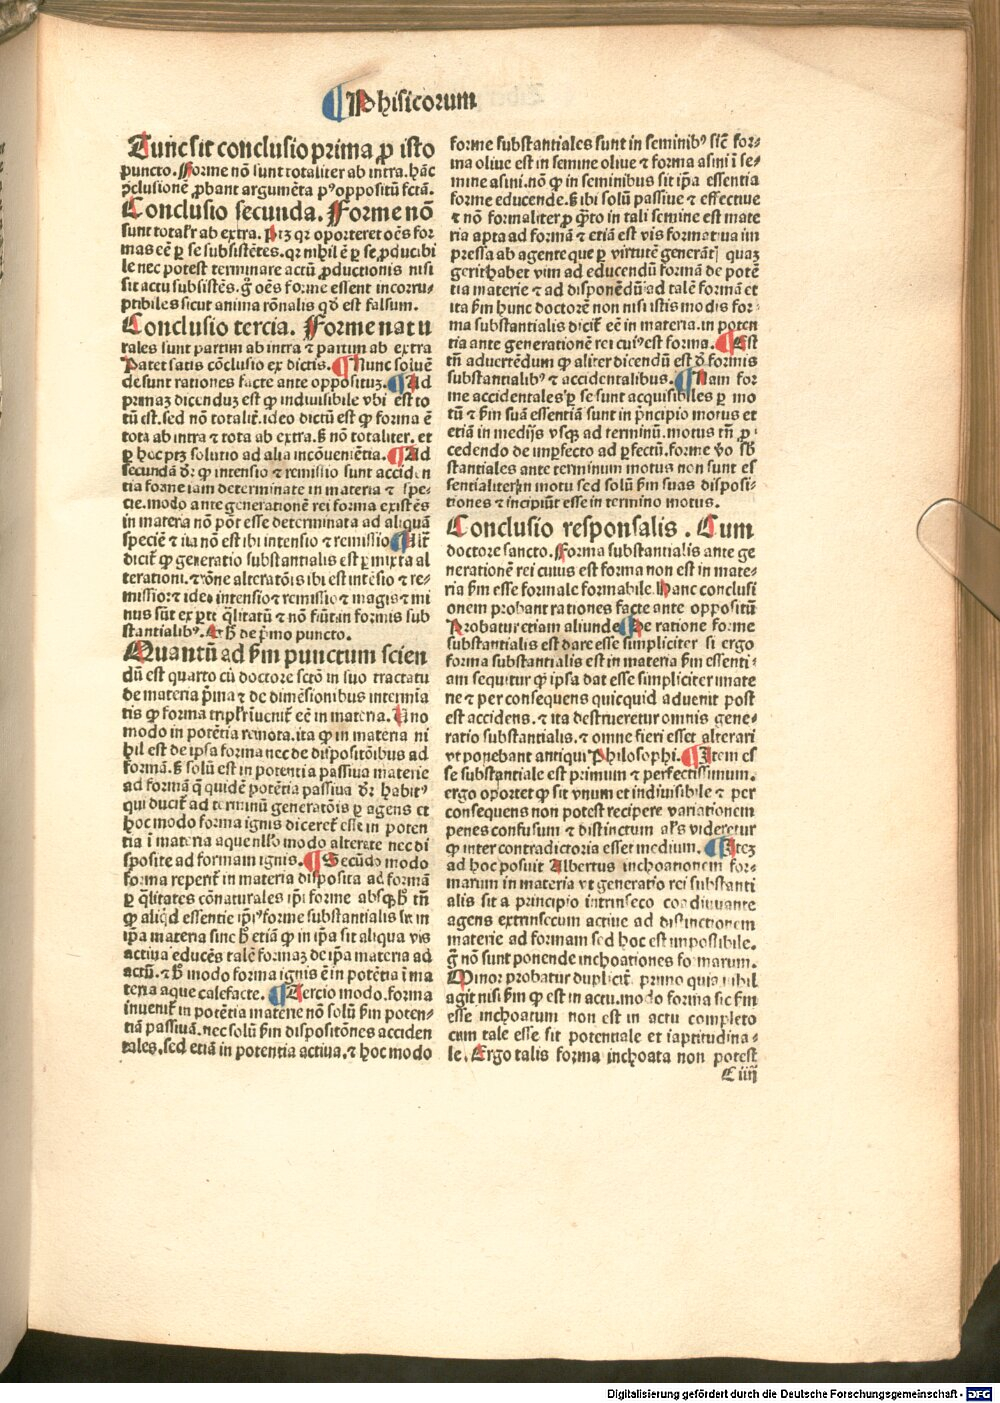 ¶ Phisicorum
Tunc sit conclusio prima ꝓ isto
puncto. Forme nō sunt totaliter ab intra. hāc
ꝯclusionē ꝓbant argumēta pꝰ oppositū fctā.
Conclusio secunda. Forme nō
sunt totalr̄ ab extra. Ptꝫ qr oporteret oēs for
mas eē ꝑ se subsistētes. qr nihil ē ꝑ se ꝓducibi
le nec potest terminare actū ꝓductionis nisi
sit actu subsistēs. ḡ oēs forme essent incorru-
ptibiles sicut anima rōnalis qd̄ est falsum.
Conclusio tercia. Forme natu
rales sunt partim ab intra ⁊ partim ab extra
Patet satis cōclusio ex dictis. ¶ Nunc soluē
de sunt rationes facte ante opposituꝫ. ¶ Ad
primaꝫ dicenduꝫ est ꝙ indiuisibile vbi est to
tū est. sed nō totalit̄. ideo dictū est ꝙ forma ē
tota ab intra ⁊ tota ab extra. sꝫ nō totaliter. et
ꝑ hoc ptꝫ solutio ad alia incōuenientia. ¶ Ad
secundā dr̄ ꝙ intensio ⁊ remissio sunt acciden
tia forme iam determinate in materia ⁊ spe-
cie. modo ante generationē rei forma existēs
in materia nō pōt esse determinata ad aliquā
speciē ⁊ ita nō est ibi intensio ⁊ remissio ¶ Alr̄
dicit̄ ꝙ generatio substantialis est ꝑmixta al
terationi. ⁊ rōne alteratōis ibi est intēsio ⁊ re-
missio: ⁊ ideo intensio ⁊ remissio ⁊ magis ⁊ mi
nus sūt ex ꝑte q̄litatū ⁊ nō fiūt in formis sub
stantialibꝰ. Et hꝫ de pͥmo puncto.
Quantū ad scd̄m punctum scien
dū est quarto cū doctore scto in suo tractatu
de materia pͥma ⁊ de dimēsionibus intermia
tis ꝙ forma triplr̄ īuenit̄ eē in materia. Uno
modo in potētia remota. ita ꝙ in materia ni
hil est de ipsa forma nec de dispositōibus ad
formā. sꝫ solū est in potentia passiua materie
ad formā q̄ quidē potētia passiua dr̄ habitꝰ
qui ducit̄ ad terminū generatōis ꝑ agens et
hoc modo forma ignis diceret̄ esse in poten
tia ī materia aque nullo modo alterate nec di
sposite ad formam ignis. ¶ Secūdo modo
forma reperit̄ in materia disposita ad formā
ꝑ q̄litates cōnaturales ip̄i forme absqꝫ hꝫ tn̄
ꝙ aliqͥd essentie ip̄iꝰ forme substantialis sit in
ip̄a materia sine hꝫ etiā ꝙ in ip̄a sit aliqua vis
actiua educēs talē formaꝫ de ip̄a materia ad
actū. ⁊ hꝫ modo forma ignis ē in potētia ī ma
teria aque calefacte. ¶ Tercio modo. forma
inuenit̄ in potētia materie nō solū scd̄m poten-
tiā passiuā. nec solū scd̄m dispositōnes acciden
tales. sed etiā in potentia actiua. ⁊ hoc modo
forme substantiales sunt in seminibꝰ sic̄ for-
ma oliue est in semine oliue ⁊ forma asini ī se-
mine asini. nō ꝙ in seminibus sit ip̄a essentia
forme educende. sꝫ ibi solū passiue ⁊ effectiue
⁊ nō formaliter ꝓ qͣnto in tali semine est mate
ria apta ad formā ⁊ etiā est vis formatiua im
pressa ab agente que ꝑ virtutē generātis quaꝫ
gerit habet vim ad educendū formā de potē
tia materie ⁊ ad disponēdū ad talē formā et
ita scd̄m hunc doctorē non nisi istis modis for-
ma substantialis dicit̄ eē in materia. in poten
tia ante generationē rei cuiꝰ est forma. ¶ Est
tn̄ aduertēdum ꝙ aliter dicendū est d̄ formis
substantialibꝰ ⁊ accidentalibus. ¶ Nam for
me accidentales ꝑ se sunt acquisibiles ꝑ mo
tū ⁊ scd̄m suā essentiā sunt in pͥncipio motus et
etiā in medijs vsqꝫ ad terminū. motus tn̄ ꝓ-
cedendo de imperfecto ad perfectū. forme ꝟo sb̄
stantiales ante terminum motus non sunt es
sentialiter in motu sed solū scd̄m suas disposi-
tiones ⁊ incipiūt esse in termino motus.
Conclusio responsalis. Cum
doctore sancto. Forma substantialis ante ge
nerationē rei cuius est forma non est in mate-
ria scd̄m esse formale formabile. Hanc conclusi
onem probant rationes facte ante oppositū
Probatur etiam aliunde ¶ De ratione forme
substantialis est dare esse simpliciter si ergo
forma substantialis est in materia scd̄m essenti-
am sequitur ꝙ ipsa dat esse simpliciter mate
rie ⁊ per consequens quicquid aduenit post
est accidens. ⁊ ita destrueretur omnis gene-
ratio substantialis. ⁊ omne fieri esset alterari
vt ponebant antiqui Philosophi. ¶ Item es
se substantiale est primum ⁊ perfectissimum.
ergo oportet ꝙ sit vnum et indiuisibile ⁊ per
consequens non potest recipere variationem
penes confusum ⁊ distinctum als̄ videretur
ꝙ inter contradictoria esset medium. ¶ Iteꝫ
ad hoc posuit Albertus inchoationem for-
marum in materia vt generatio rei substanti
alis sit a principio intrinseco coadiuuante
agens extrinsecum actiue ad distinctionem
materie ad formam sed hoc est impossibile.
ḡ nō sunt ponende inchoationes formarum.
Minor probatur duplicit̄. primo quia nihil
agit nisi scd̄m ꝙ est in actu. modo forma sic scd̄m
esse inchoatum non est in actu completo
cum tale esse sit potentiale et iaptitudina-
le. Ergo talis forma inchoata non potest
E iiij
Digitalisierung gefördert durch die Deutsche Forschungsgemeinschaft - DFG